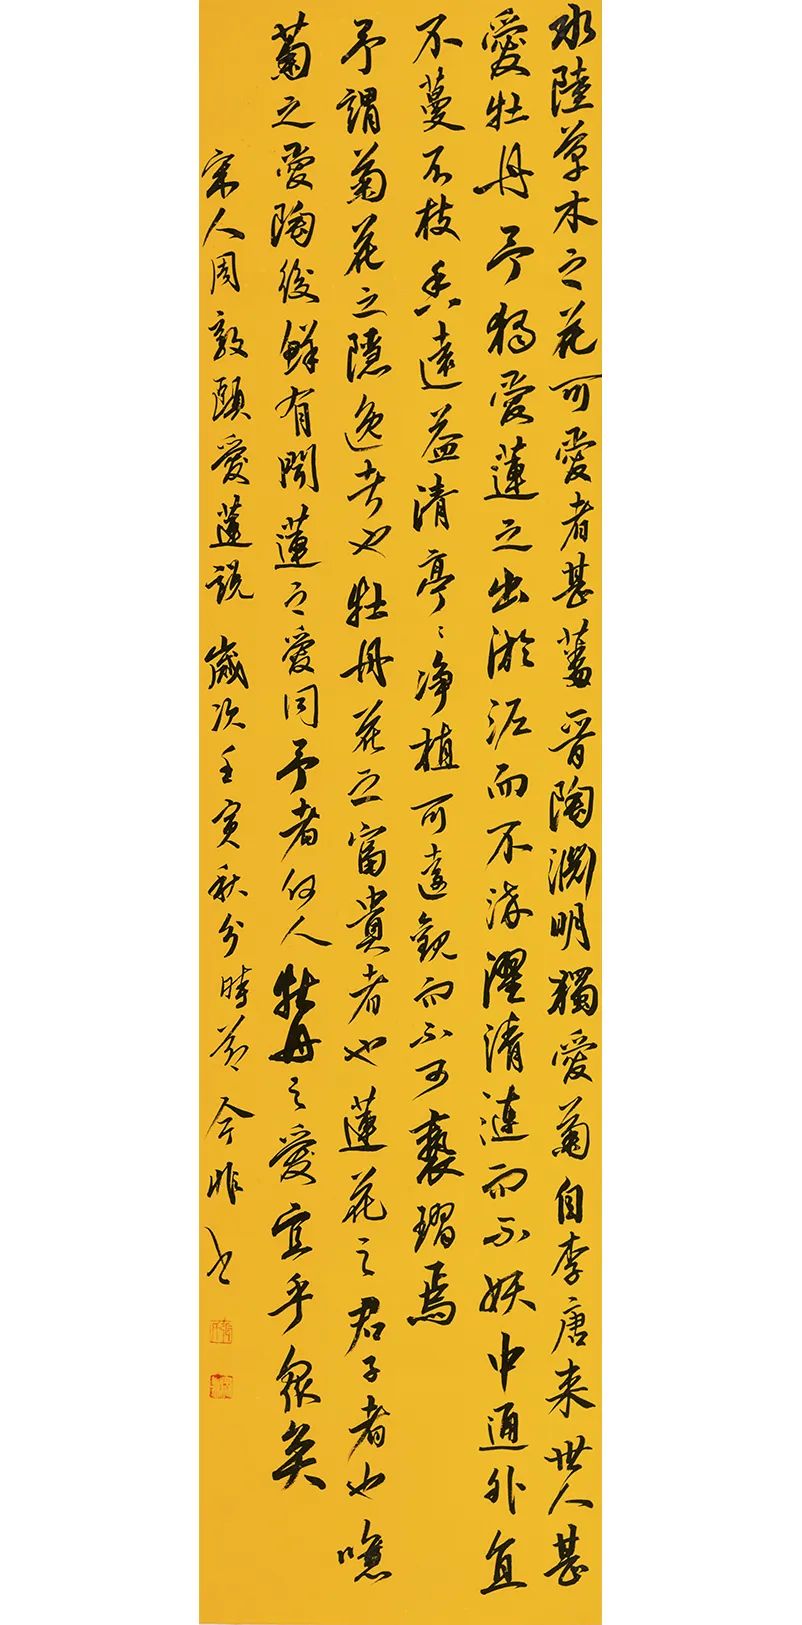 水陸草木之花可愛者甚蕃晉陶淵明獨愛菊自李唐來世人甚
愛牡丹予獨愛蓮之出淤泥而不染濯清漣而不妖中通外直
不蔓不枝香遠益清亭〻淨植可遠觀而不可褻翫焉
予謂菊花之隱逸者也牡丹花之富貴者也蓮花之君子者也噫
菊之愛陶後鮮有聞蓮之愛同予者何人牡丹之愛宜乎眾矣
宋人周敦頤愛蓮說 歲次壬寅秋分時節 今昨书